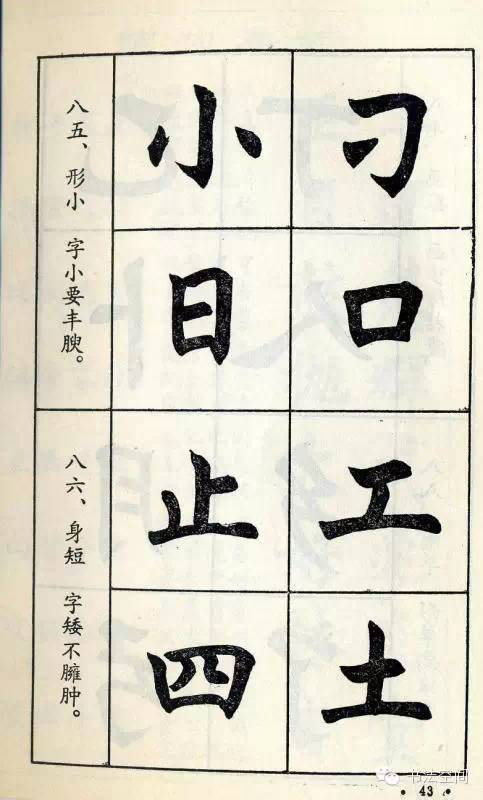 刁口工土
小日止四
八五、形小 字小要丰腴。
八六、身短 字矮不臃肿。
书法空间
· 43 ·